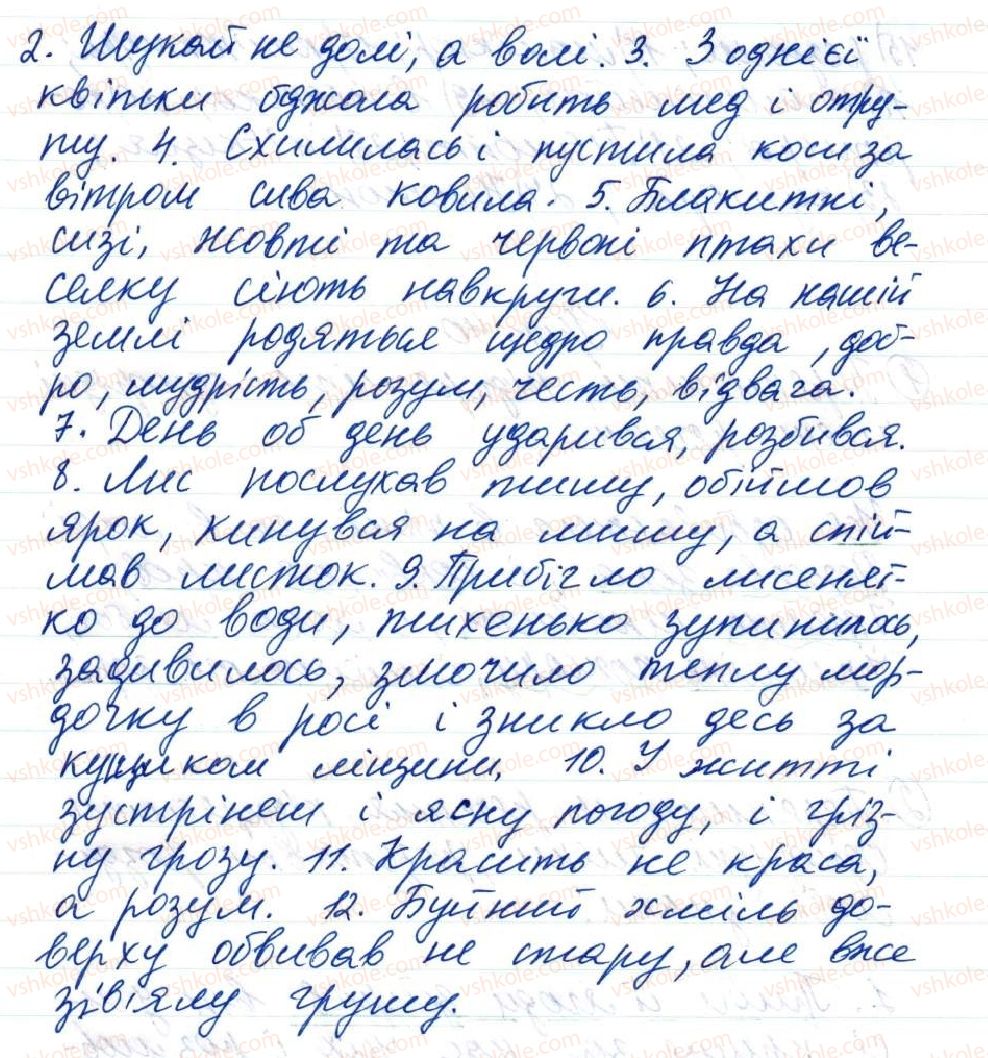 2. Шукай не долі, а волі. 3. З однієї
квітки бджола робить мед і отру-
ту. 4. Схилилась і пустила коси за
вітром сива ковила. 5. Блакитні,
сизі, жовті та червоні птахи ве-
селку сіють навкруги. 6. На нашій
землі родяться щедро правда, доб-
ро, мудрість, розум, честь, відвага.
7. День об день ударився, розбився.
8. Лис послухав тишу, обійшов
ярок, кинувся на мишу, а спій-
мав листок. 9. Прибігло лисенят-
ко до води, тихенько зупинилось,
задивилось, змочило теплу мор-
дочку в росі і зникло десь за
кущиком ліщини. 10. У житті
зустрінем і ясну погоду, і гріз-
ну грозу. 11. Красить не краса,
а розум. 12. Буйний хміль до-
верху обвивав не стару, але вже
зів'ялу грушу.